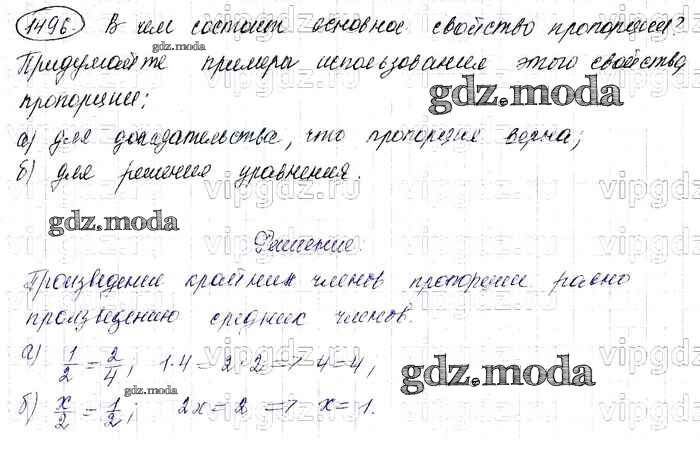 1496. В чем состоит основное свойство пропорции?
gdz.moda
Придумайте примеры использования этого свойства
пропорции:
gdz.moda
а) для доказательства, что пропорция верна;
б) для решения уравнения.
vipgdz.ru
gdz.moda
Решение:
Произведение крайних членов пропорции равно
произведению средних членов.
а) 1/2 = 2/4; 1·4 = 2·2 => 4=4;
gdz.moda
gdz.moda
б) x/2 = 1/2; 2x = 2 => x = 1.